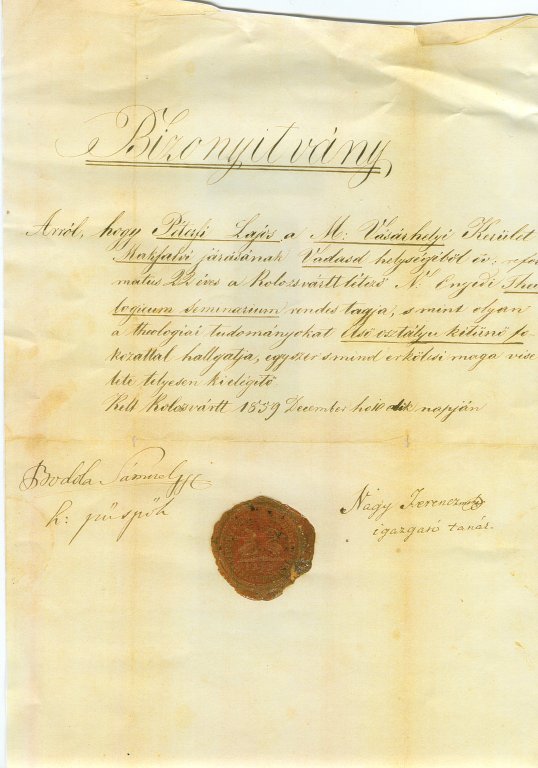 Bizonyítvány
Arról, hogy Péterfi Lajos a M: Vásárhelyi Kerület
Makfalvi járásának Vadasd helységiből ev: refor
mátus 22 éves a Kolozsvártt létező N. Enyedi Theo
logicum seminarium rendes tagja, s mint olyan
a theologiai tudományokat első osztályu kitünő fo
kozattal hallgatja, egyszersmind erkölcsi maga vise
lete telyesen kielégitő
Kelt Kolozsvártt 1859 December hó 10 dik napján
Bodola Sámuel
h: püspök
Nagy Ferencz
igazgató tanár.